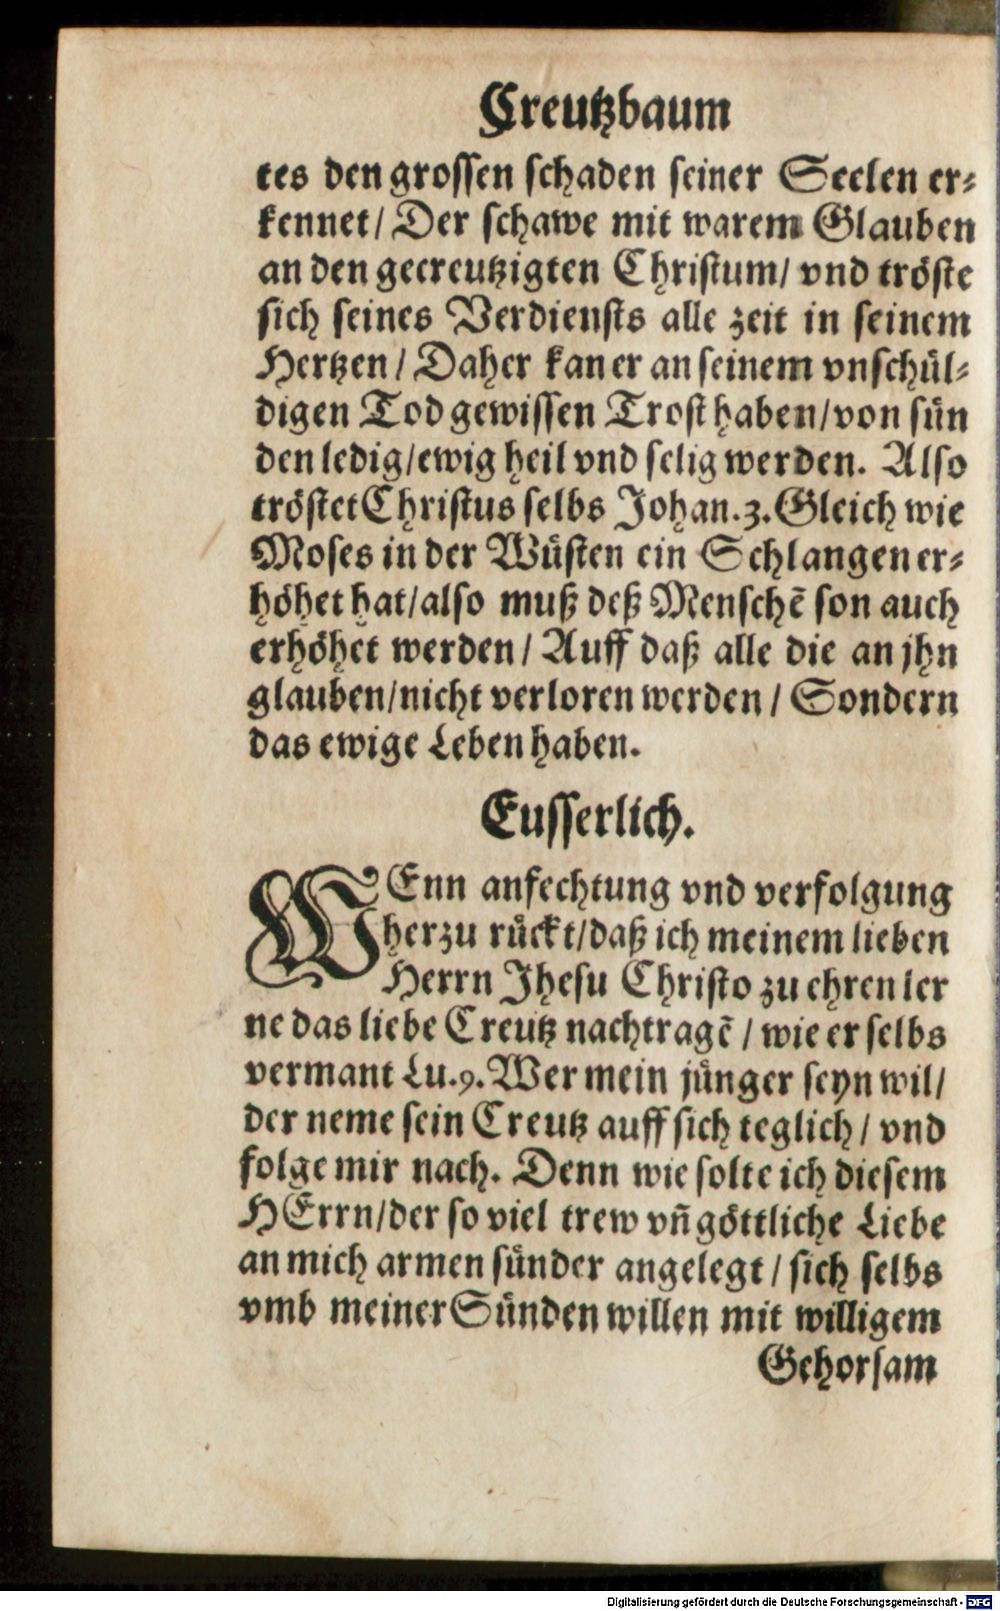 Creutzbaum
tes den grossen schaden seiner Seelen er-
kennet/ Der schawe mit warem Glauben
an den gecreutzigten Christum/ vnd tröste
sich seines Verdiensts alle zeit in seinem
Hertzen / Daher kan er an seinem vnschül-
digen Tod gewissen Trost haben/ von sün
den ledig/ ewig heil vnd selig werden. Also
tröstet Christus selbs Johan. 3. Gleich wie
Moses in der Wüsten ein Schlangen er-
höhet hat/ also muß deß Menschē son auch
erhöhet werden / Auff daß alle die an jhn
glauben/ nicht verloren werden / Sondern
das ewige Leben haben.
Eusserlich.
WEnn anfechtung vnd verfolgung
herzu rückt/ daß ich meinem lieben
Herrn Jhesu Christo zu ehren ler
ne das liebe Creutz nachtragē / wie er selbs
vermant Lu. 9. Wer mein jünger seyn wil/
der neme sein Creutz auff sich teglich / vnd
folge mir nach. Denn wie solte ich diesem
HErrn/ der so viel trew vñ göttliche Liebe
an mich armen sünder angelegt / sich selbs
vmb meiner Sünden willen mit willigem
Gehorsam
Digitalisierung gefördert durch die Deutsche Forschungsgemeinschaft - DFG